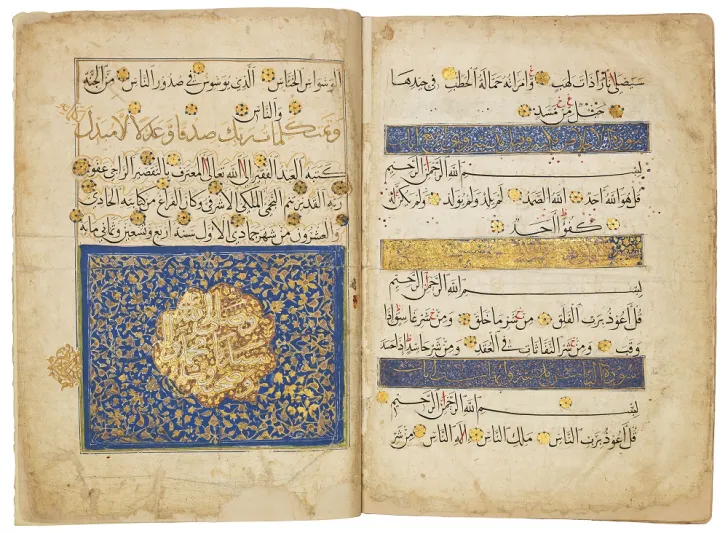 سيصلى نارا ذات لهب وامراته حمالة الحطب في جيدها
حبل من مسد
بسم الله الرحمن الرحيم
قل هو الله احد الله الصمد لم يلد ولم يولد ولم يكن له
كفوا احد
بسم الله الرحمن الرحيم
قل اعوذ برب الفلق من شر ما خلق ومن شر غاسق اذا
وقب ومن شر النفاثات في العقد ومن شر حاسد اذا حسد
سورة الناس
بسم الله الرحمن الرحيم
قل اعوذ برب الناس ملك الناس اله الناس من شر
الوسواس الخناس الذي يوسوس في صدور الناس من الجنة
والناس
وتمت كلمات ربك صدقا وعدلا لا مبدل
كتبه العبد الفقير الى الله تعالى المعترف بالتقصير الراجي عفو
ربه القدير النجمي الملكي الاشرفي وكان الفراغ من كتابته الحادي
والعشرون من شهر جمادى الاول سنة اربع وتسعين وثماني مائة